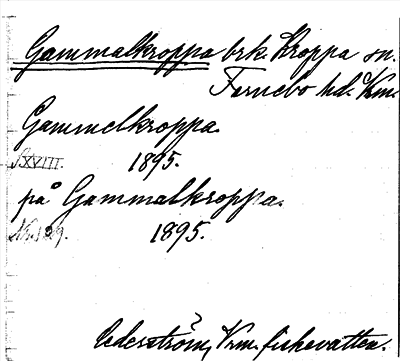 Gammalkroppa brk. Kroppa sn.
Fernebo hd. Vrm.
Gammelkroppa.
S.XVIII. 1895.
på Gammalkroppa.
Nr. 129. 1895.
Cederström, Vrm. fiskevatten.